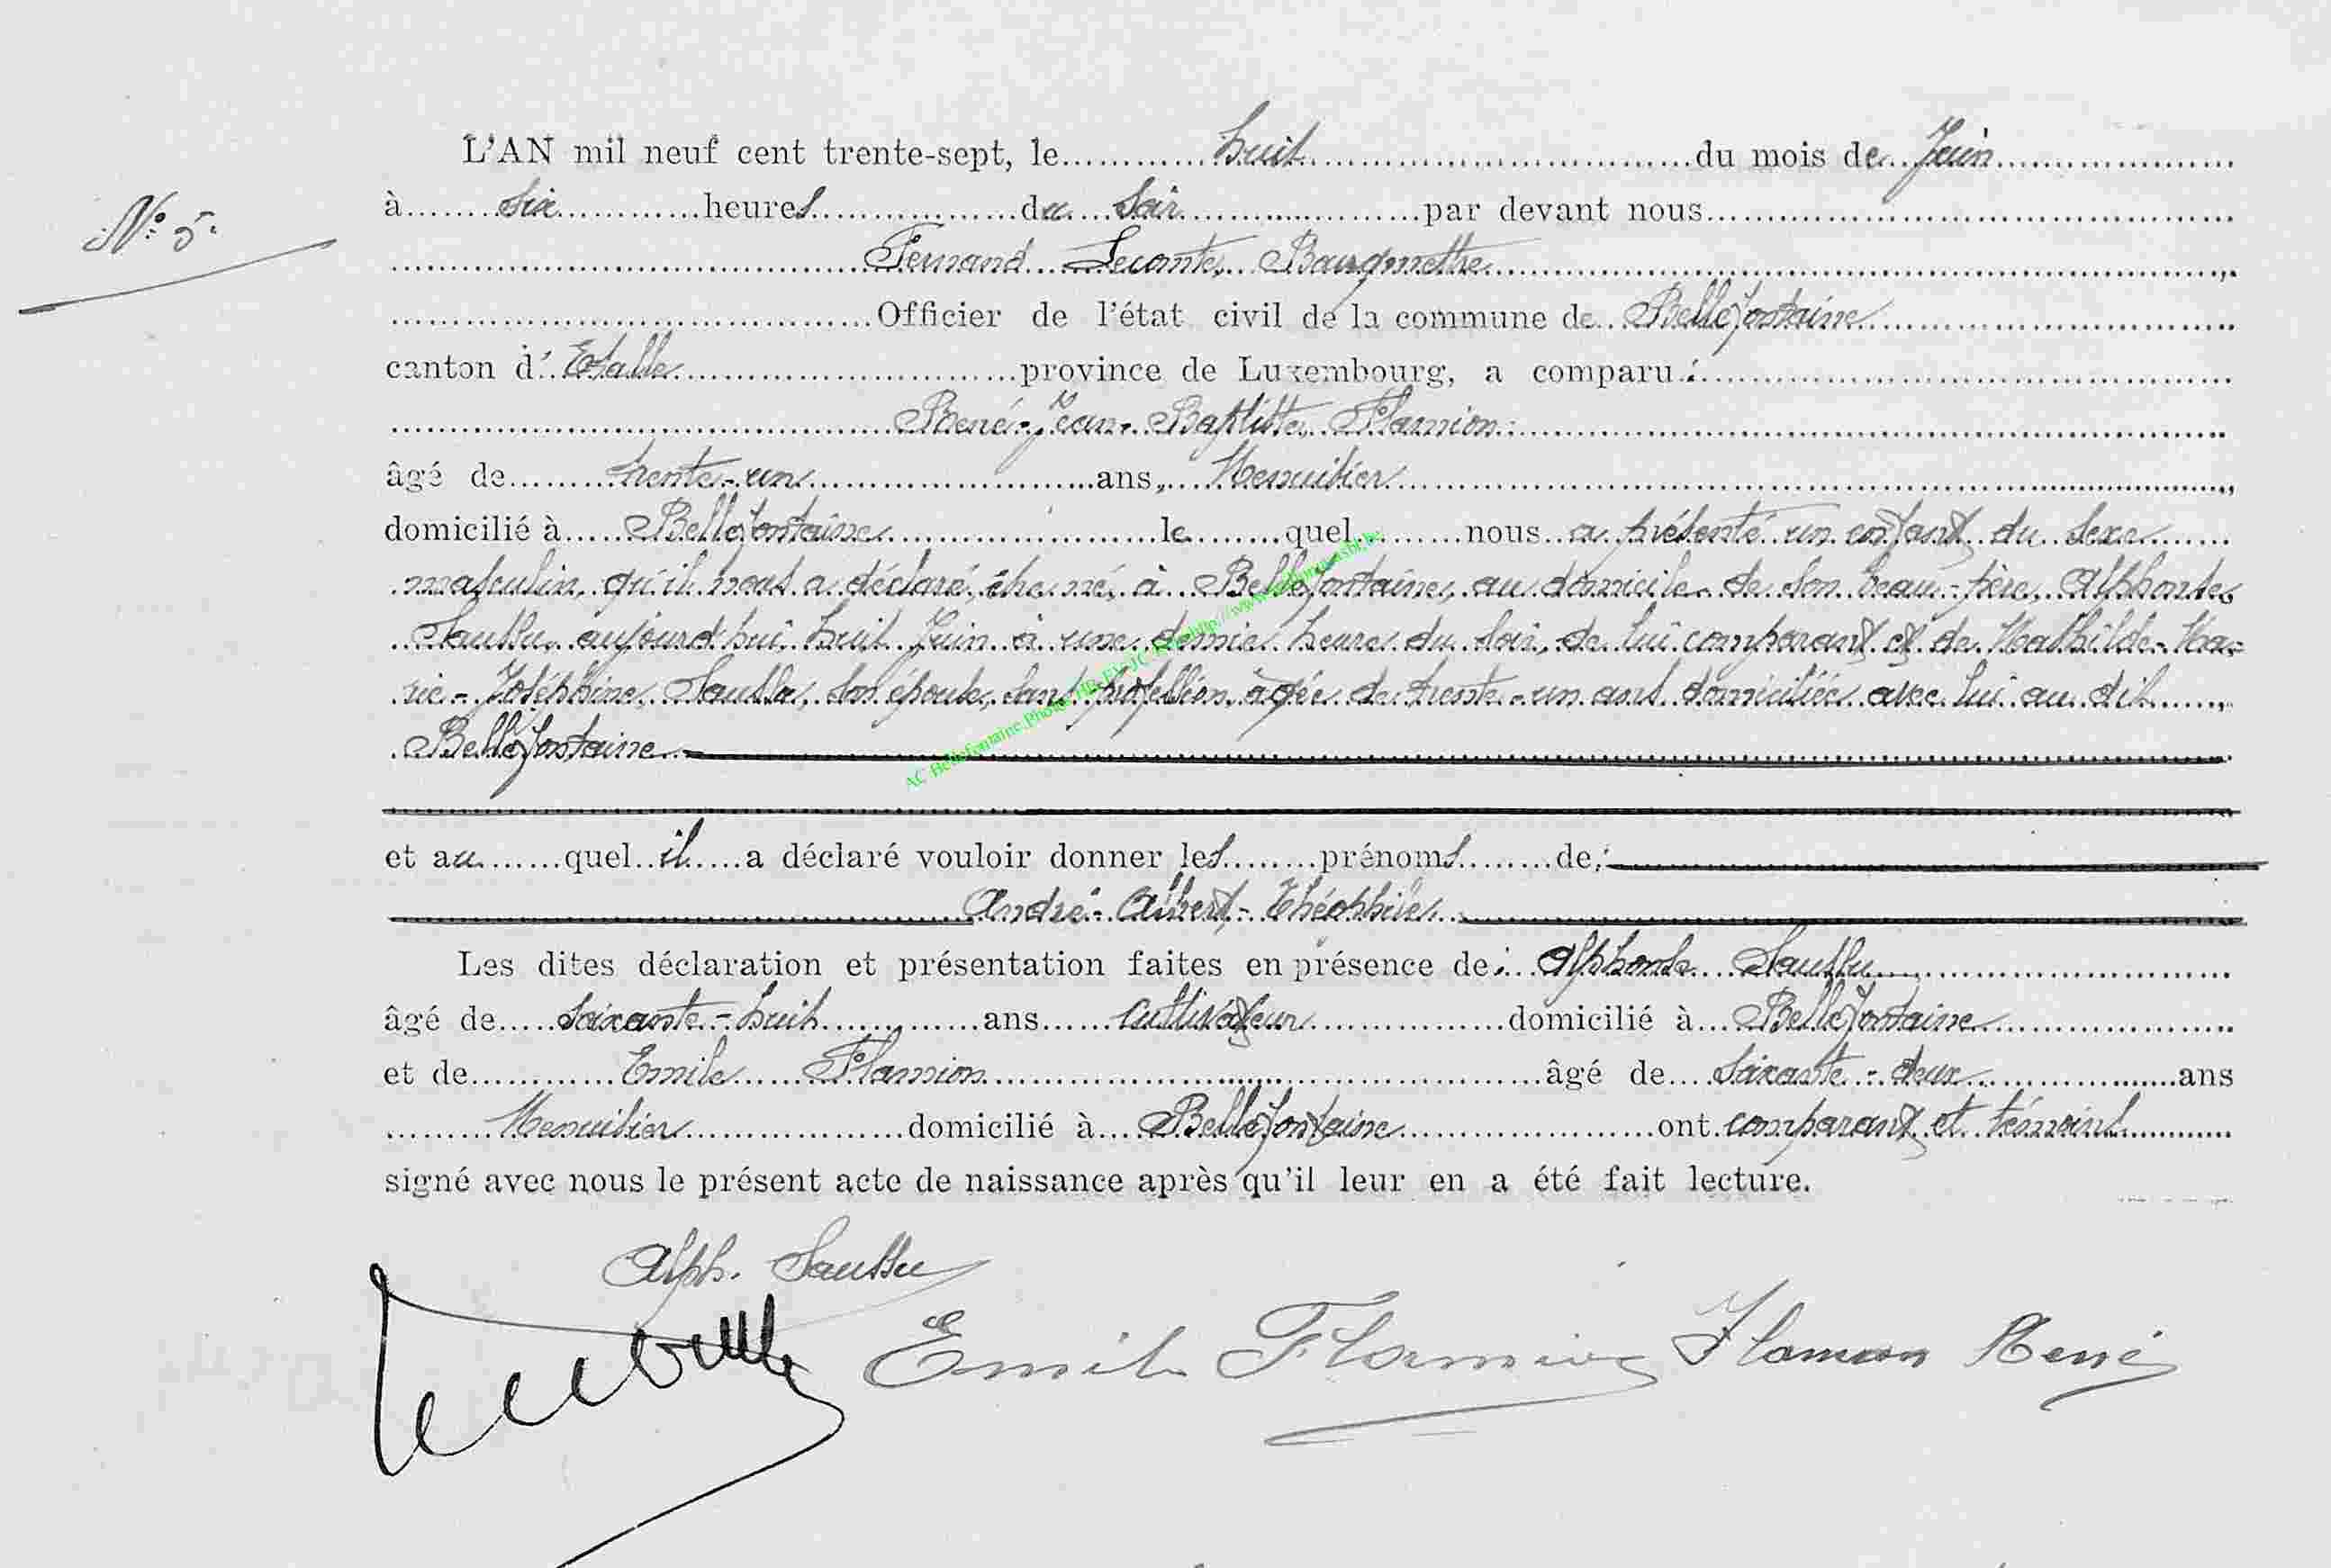 L'AN mil neuf cent trente-sept, le huit du mois de Juin
N° 5.
à six heures du soir par devant nous
Fernand Lecomte, Bourgmestre
Officier de l'état civil de la commune de Bellefontaine
canton d'Etalle province de Luxembourg, a comparu :
René-Jean-Baptiste Flamion
âgé de trente-un ans, Menuisier
domicilié à Bellefontaine lequel nous a présenté un enfant du sexe
masculin, qu'il nous a déclaré être né, à Bellefontaine, au domicile de son beau-père, Alphonse
Saussu, aujourd'hui huit Juin à une demie heure du soir, de lui comparant et de Mathilde-Ma=
rie-Joséphine Saussu, son épouse, sans profession, âgée de trente-un ans domiciliée avec lui au dit
Bellefontaine
et auquel il a déclaré vouloir donner les prénoms de :
André-Albert-Théophile
Les dites déclaration et présentation faites en présence de : Alphonse Saussu
âgé de soixante-huit ans cultivateur domicilié à Bellefontaine
et de Emile Flamion âgé de soixante-deux ans
Menuisier domicilié à Bellefontaine ont comparant et témoins
signé avec nous le présent acte de naissance après qu'il leur en a été fait lecture.
Alph. Saussu
Lecomte Emile Flamion Flamion René
AC Bellefontaine Photo